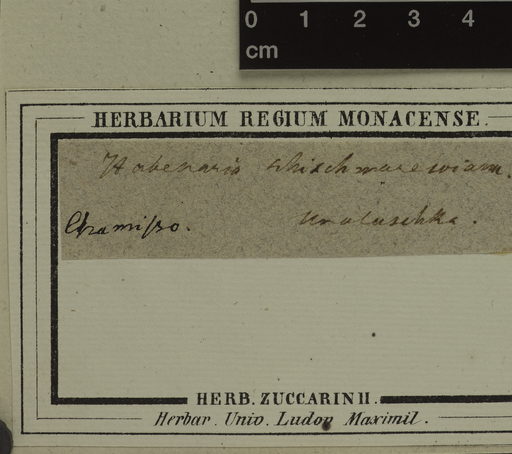 0 1 2 3 4
cm
HERBARIUM REGIUM MONACENSE.
Habenaria schischmarewiana.
Chamisso. Unalaschka.
HERB. ZUCCARINII.
Herbar. Univ. Ludov Maximil.